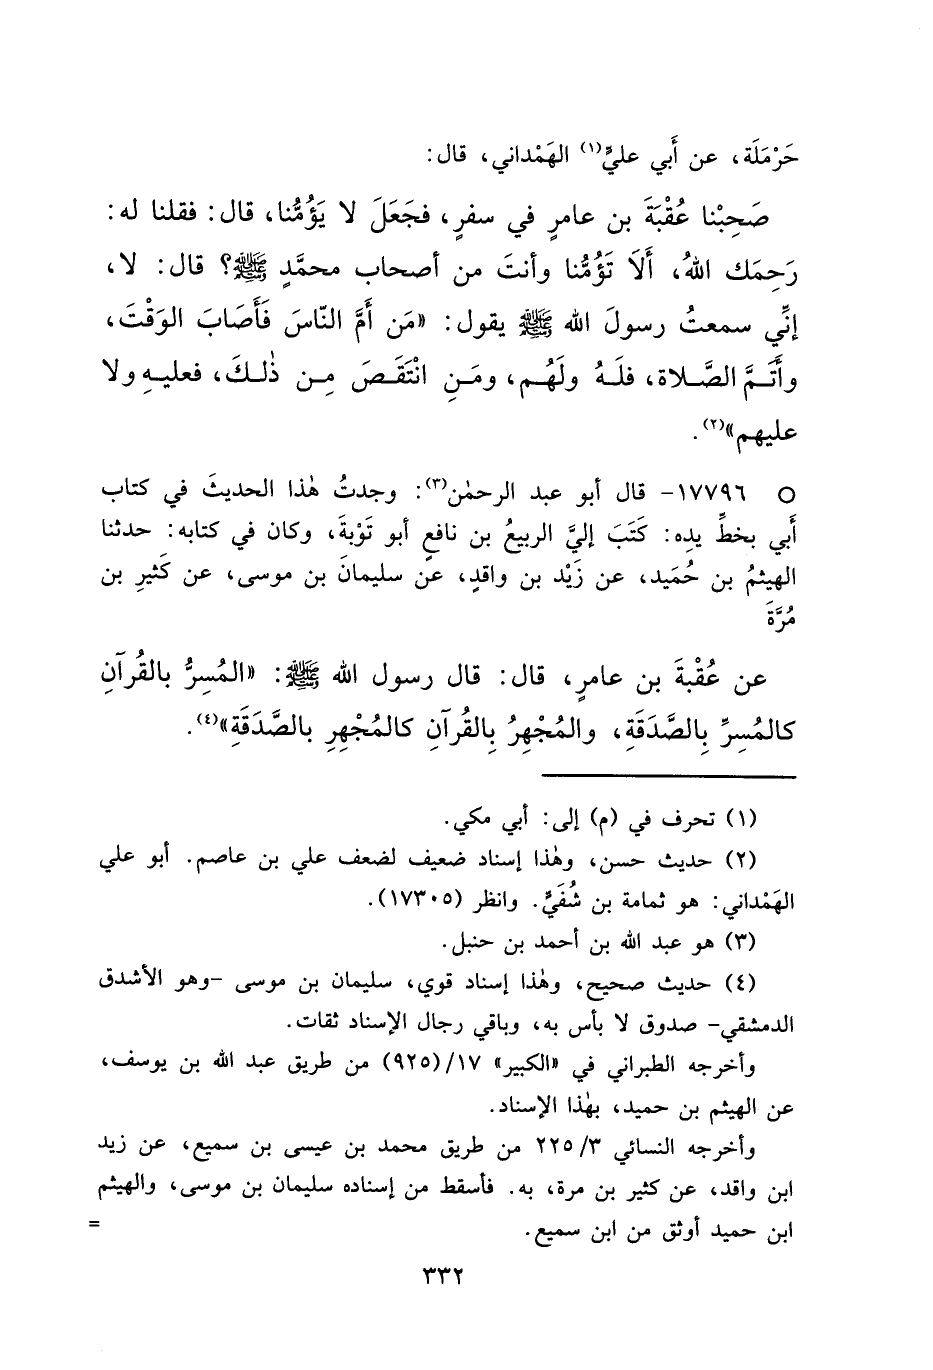 حَرْمَلَة، عن أَبي عليٍّ(١) الهَمْداني، قال:
صَحِبْنا عُقْبَةَ بن عامرٍ في سفرٍ، فجَعَلَ لا يَؤُمُّنا، قال: فقلنا له:
رَحِمَك اللهُ، أَلَا تَؤُمُّنا وأنتَ من أصحاب محمَّدٍ ﷺ؟ قال: لا،
إنِّي سمعتُ رسولَ الله ﷺ يقول: «مَن أَمَّ النّاسَ فَأَصَابَ الوَقْتَ،
وأَتَمَّ الصَّلاة، فلَهُ ولَهُم، ومَنِ انْتَقَصَ مِن ذٰلكَ، فعليهِ ولا
عليهم»(٢).
○ ١٧٧٩٦- قال أبو عبد الرحمٰن(٣): وجدتُ هٰذا الحديثَ في كتاب
أَبي بخطِّ يدِه: كَتَبَ إليَّ الربيعُ بن نافعٍ أبو تَوْبةَ، وكان في كتابه: حدثنا
الهيثمُ بن حُمَيد، عن زَيْد بن واقدٍ، عن سليمانَ بن موسى، عن كَثيرِ بن
مُرَّةَ
عن عُقْبةَ بن عامرٍ، قال: قال رسول الله ﷺ: «المُسِرُّ بالقُرآنِ
كالمُسِرِّ بِالصَّدَقَةِ، والمُجْهِرُ بِالقُرآنِ كالمُجْهِرِ بالصَّدَقَةِ»(٤).
(١) تحرف في (م) إلى: أبي مكي.
(٢) حديث حسن، وهٰذا إسناد ضعيف لضعف علي بن عاصم. أبو علي
الهَمْداني: هو ثمامة بن شُفَيٍّ. وانظر (١٧٣٠٥).
(٣) هو عبد الله بن أحمد بن حنبل.
(٤) حديث صحيح، وهٰذا إسناد قوي، سليمان بن موسى -وهو الأشدق
الدمشقي- صدوق لا بأس به، وباقي رجال الإسناد ثقات.
وأخرجه الطبراني في «الكبير» ١٧/(٩٢٥) من طريق عبد الله بن يوسف،
عن الهيثم بن حميد، بهٰذا الإسناد.
وأخرجه النسائي ٢٢٥/٣ من طريق محمد بن عيسى بن سميع، عن زيد
ابن واقد، عن كثير بن مرة، به. فأسقط من إسناده سليمان بن موسى، والهيثم
ابن حميد أوثق من ابن سميع.
=
٣٣٢